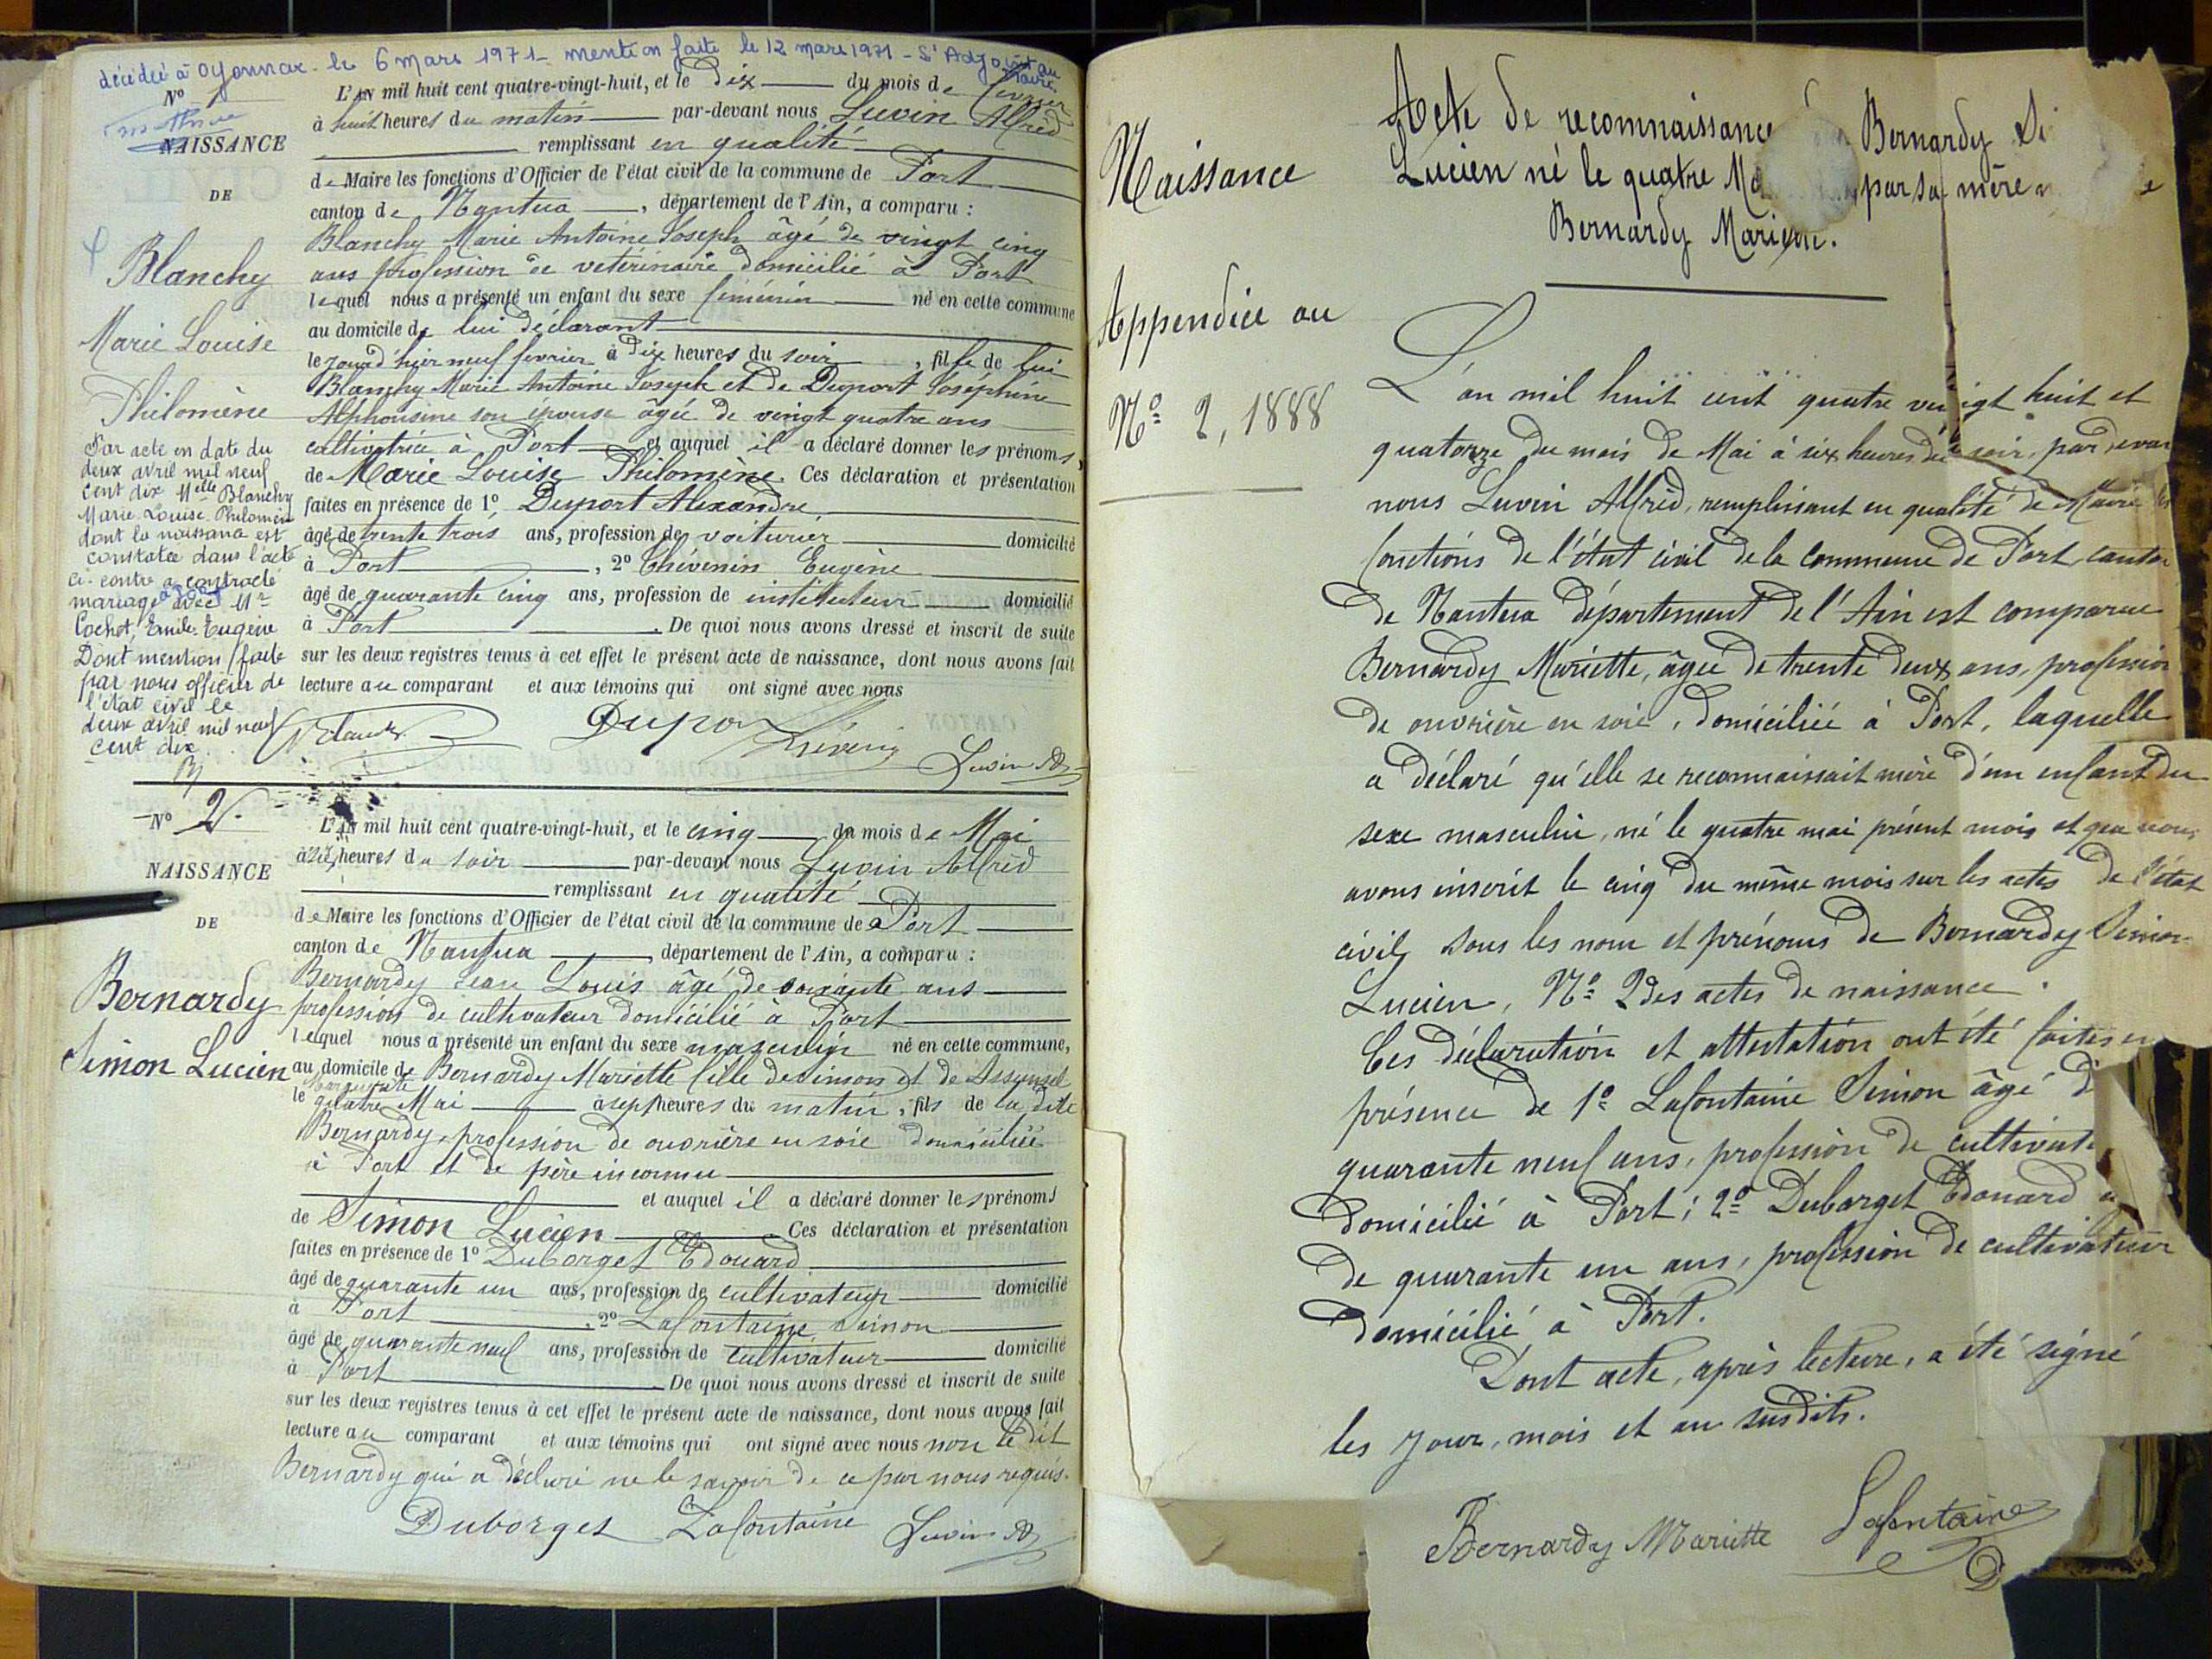 décédée à Oyonnax le 6 mars 1971 - mention faite le 12 mars 1971 -
Nº 1
NAISSANCE
DE
Blanchy
Marie Louise
Philomène
Par acte en date du
deux avril mil neuf
cent dix Melle Blanchy
Marie Louise Philomène
dont la naissance est
constatée dans l'acte
ci-contre a contracté
mariage avec Mr
Cochet, Emile Eugène
Dont mention faite
par nous officier de
l'état civil le
deux avril mil neuf
cent dix.
L'AN mil huit cent quatre-vingt-huit, et le dix du mois de février
à huit heures du matin par-devant nous Luvin Alfred
remplissant en qualité
de Maire les fonctions d'Officier de l'état civil de la commune de Port
canton de Nantua, département de l'Ain, a comparu :
Blanchy Marie Antoine Joseph âgé de vingt cinq
ans profession de vétérinaire domicilié à Port
lequel nous a présenté un enfant du sexe féminin né en cette commune
au domicile de lui déclarant
le jour d'hier neuf fevrier à dix heures du soir, fille de lui
Blanchy Marie Antoine Joseph et de Duport Joséphine
Alphonsine son épouse âgée de vingt quatre ans
cultivatrice à Port et auquel il a déclaré donner les prénoms,
de Marie Louise Philomène. Ces déclaration et présentation
faites en présence de 1º Duport Alexandre
âgé de trente trois ans, profession de voiturier domicilié
à Port, 2º Thévenin Eugène
âgé de quarante cinq ans, profession de instituteur domicilié
à Port. De quoi nous avons dressé et inscrit de suite
sur les deux registres tenus à cet effet le présent acte de naissance, dont nous avons fait
lecture au comparant et aux témoins qui ont signé avec nous
Blanchy Duport Thévenin Luvin A
Nº 2.
NAISSANCE
DE
Bernardy
Simon Lucien
L'AN mil huit cent quatre-vingt-huit, et le cinq du mois de Mai
à six heures du soir par-devant nous Luvin Alfred
remplissant en qualité
de Maire les fonctions d'Officier de l'état civil de la commune de Port
canton de Nantua, département de l'Ain, a comparu :
Bernardy Jean Louis âgé de soixante ans
profession de cultivateur domicilié à Port
lequel nous a présenté un enfant du sexe masculin né en cette commune,
au domicile de Bernardy Mariette fille de Simon et de
Marguerite
le quatre Mai à sept heures du matin, fils de la dite
Bernardy, profession de ouvrière en soie domiciliée
à Port et de père inconnu
et auquel il a déclaré donner les prénoms
de Simon Lucien Ces déclaration et présentation
faites en présence de 1º Duborget Edouard
âgé de quarante un ans, profession de cultivateur domicilié
à Port, 2º Lafontaine Simon
âgé de quarante neuf ans, profession de cultivateur domicilié
à Port De quoi nous avons dressé et inscrit de suite
sur les deux registres tenus à cet effet le présent acte de naissance, dont nous avons fait
lecture au comparant et aux témoins qui ont signé avec nous non le dit
Bernardy qui a déclaré ne le savoir de ce par nous requis.
Duborget Lafontaine Luvin A
Naissance
Appendice au
Nº 2, 1888
Acte de reconnaissance Bernardy Si
Lucien né le quatre Ma par sa mère
Bernardy Mariette.
L'an mil huit cent quatre vingt huit et
quatorze du mois de Mai à six heures du soir, par devan
nous Luvin Alfred, remplissant en qualité de Maire les
fonctions de l'état civil de la commune de Port, canton
de Nantua département de l'Ain est comparue
Bernardy Mariette, âgée de trente deux ans, profession
de ouvrière en soie, domiciliée à Port, laquelle
a déclaré qu'elle se reconnaissait mère d'un enfant du
sexe masculin, né le quatre mai présent mois et que nous
avons inscrit le cinq du même mois sur les actes de l'état
civil sous les nom et prénoms de Bernardy Simon
Lucien, Nº 2 des actes de naissance.
Ces déclaration et attestation ont été faites en
présence de 1º Lafontaine Simon âgé d
quarante neuf ans, profession de cultivat
domicilié à Port; 2º Duborget Edouard
de quarante un ans, profession de cultivateur
domicilié à Port.
Dont acte, après lecture, a été signé
les jour, mois et an susdits.
Bernardy Mariette Lafontaine
D